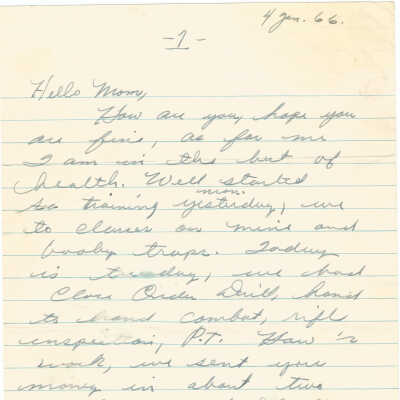 4 Jan. 66.
- 1 -
Hello Mom,
How are you, hope you
are fine, as for me
I am in the best of
health. Well started
mon.
training yesterday, we
to classes on mine and
booby traps. Today
is tuesday, we had
Close Order Drill, hand
to hand combat, rifl
inspection, P.T. How 's
work, we sent you
money in about two